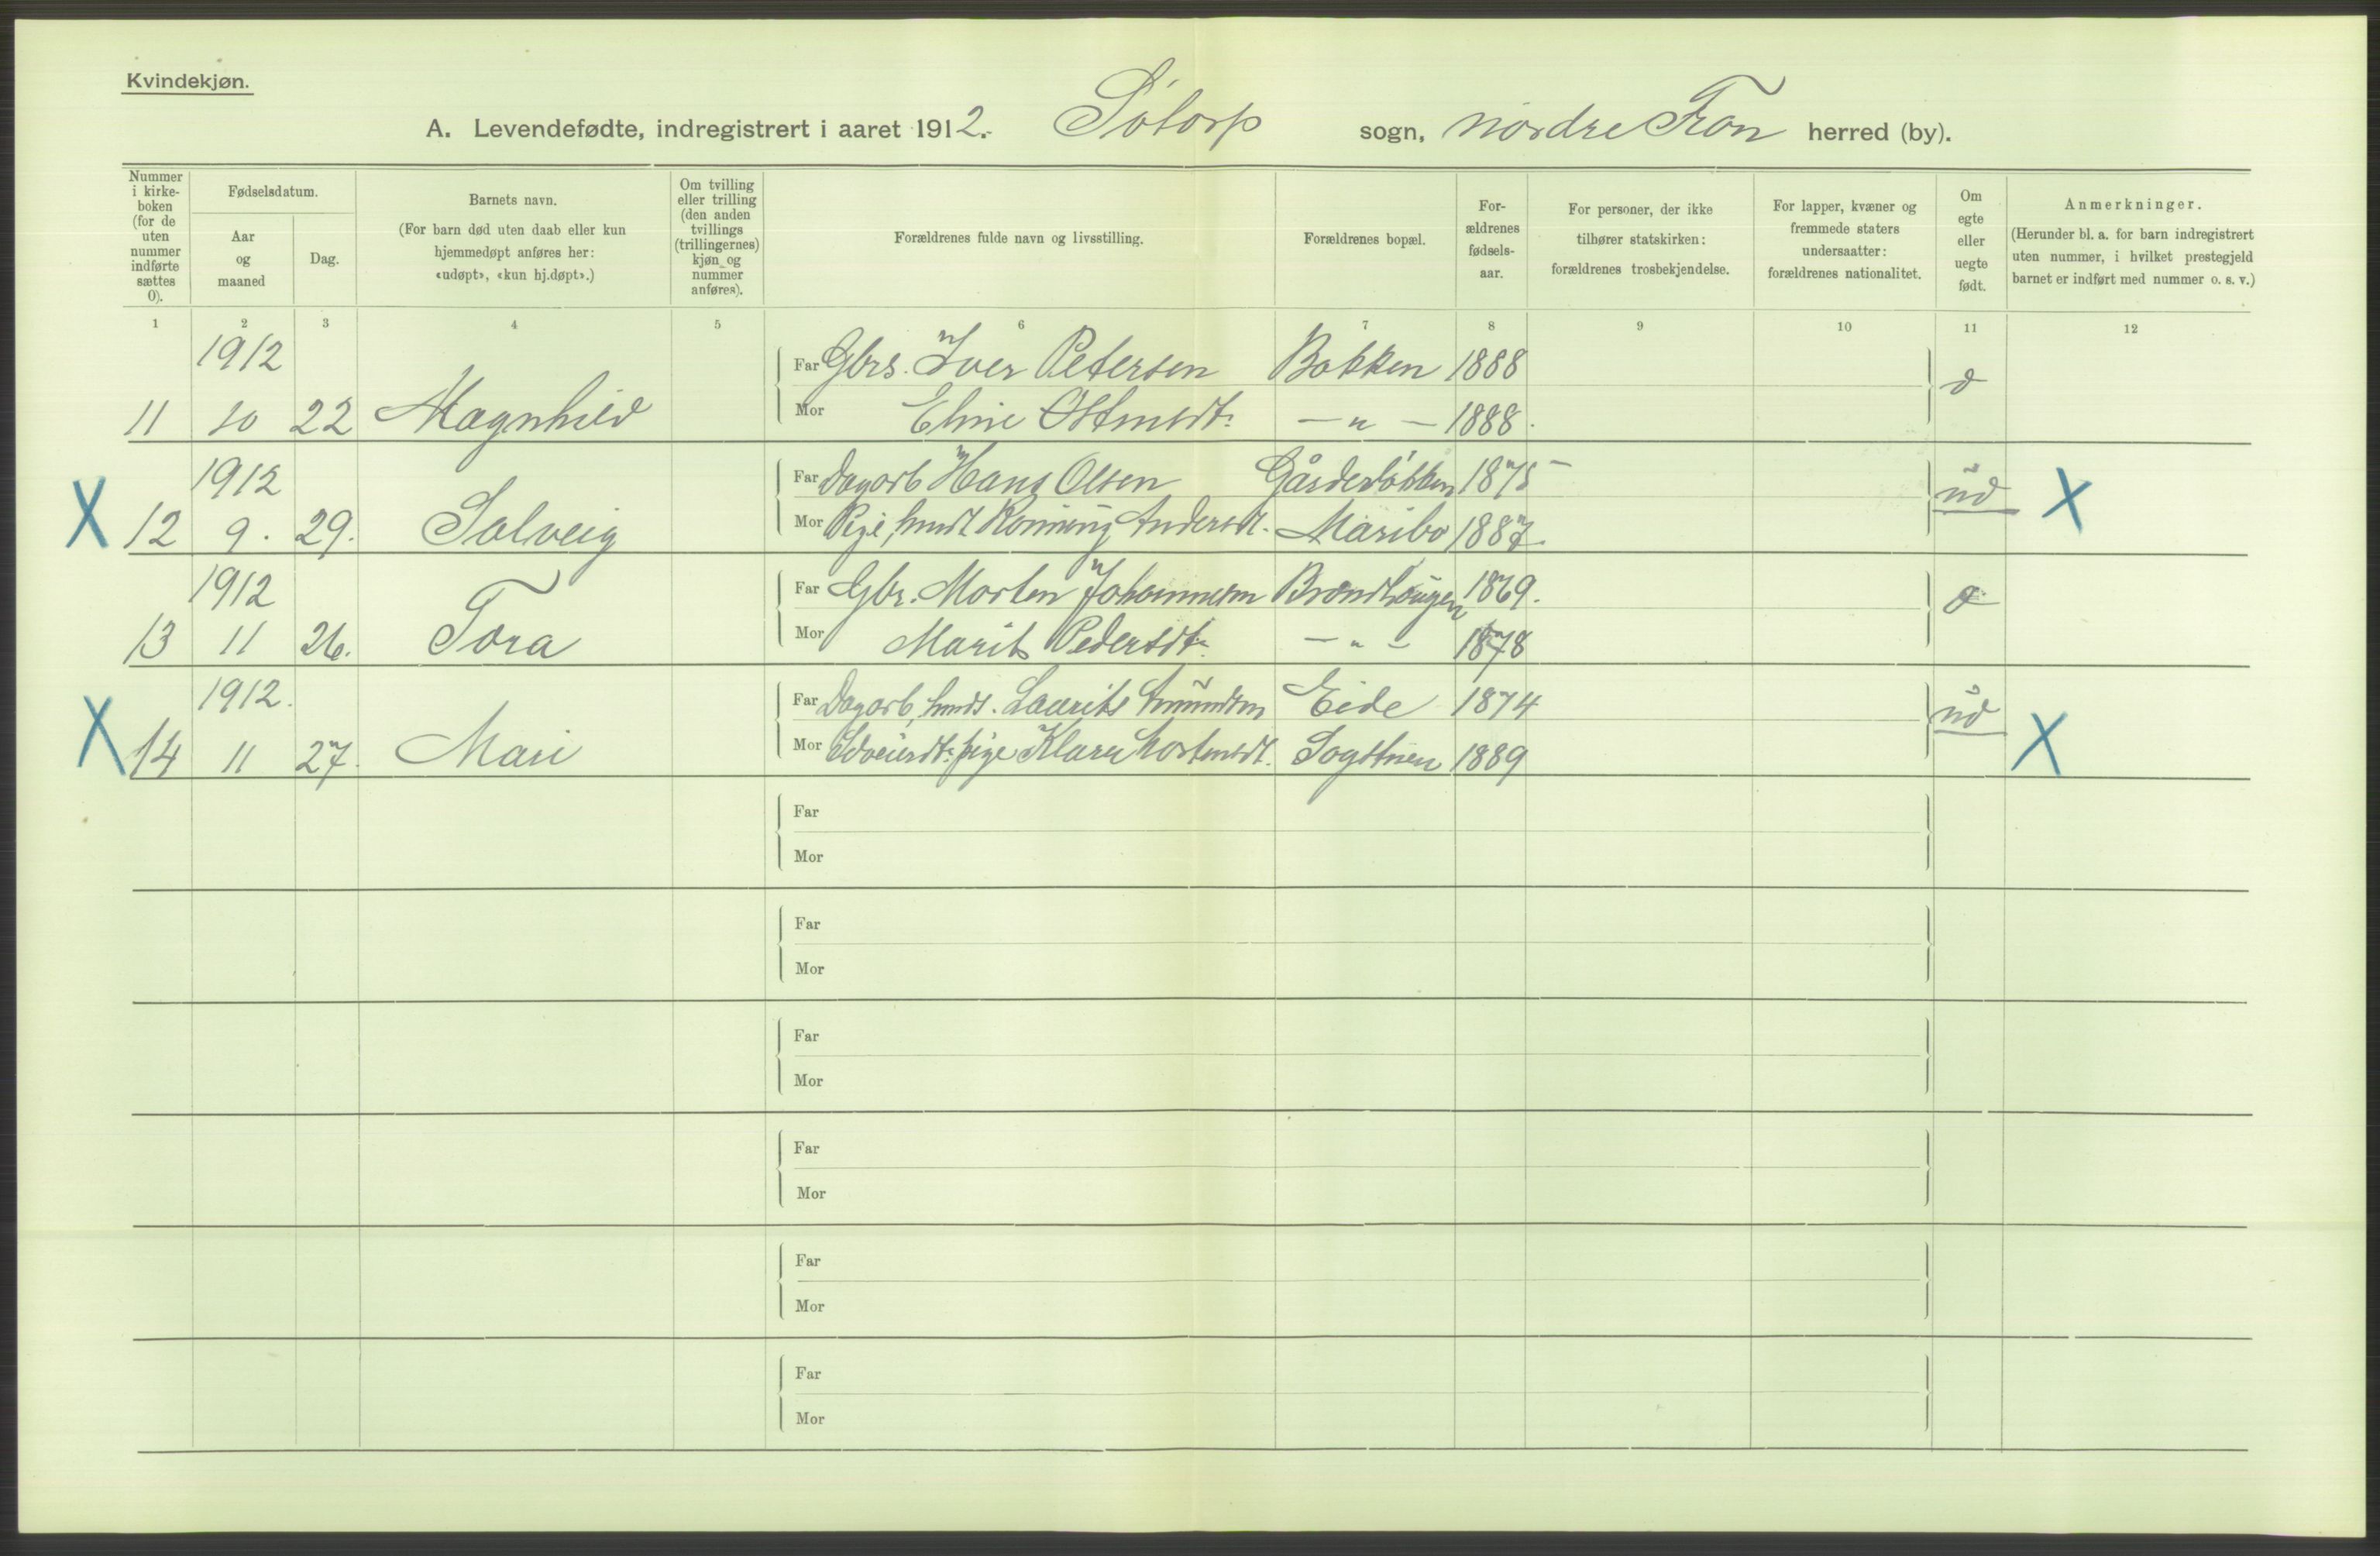 Kvindekjøn.
A. Levendefødte, indregistrert i aaret 1912. Sótorp sogn, nordre Fron herred (by).
Nummer i kirke-boken (for de uten nummer indførte sættes 0).
Fødselsdatum.
Aar og maaned
Dag.
Barnets navn.
(For barn død uten daab eller kun hjemmedøpt anføres her: «udøpt», «kun hj.døpt».)
Om tvilling eller trilling (den anden tvillings (trillingernes) kjøn og nummer anføres).
Forældrenes fulde navn og livsstilling.
Forældrenes bopæl.
For-ældrenes fødsels-aar.
For personer, der ikke tilhører statskirken: forældrenes trosbekjendelse.
For lapper, kvæner og fremmede staters undersaatter: forældrenes nationalitet.
Om egte eller uegte født.
Anmerkninger.
(Herunder bl. a. for barn indregistrert uten nummer, i hvilket prestegjeld barnet er indført med nummer o. s. v.)
1 2 3 4 5 6 7 8 9 10 11 12
1912 Far Gbrs. Iver Petersen Bakken 1888
11 10 22 Magnhild Mor Eline Ostensdt. — " — 1888.
1912 Far Dagarb Hans Olsen 1875
X 12 9. 29. Solveig Mor Pige, Andersdt. Maribo 1887. X
1912 Far Gbr. Morten Johannesen Brandhaugen 1869.
13 11 26. Tora Mor Marit Pedersdt. — " — 1878
1912. Far Dagarb, Laurits Amundsen Eide 1874
X 14 11 27. Mari Mor pige Klara 1889 X
Far
Mor
Far
Mor
Far
Mor
Far
Mor
Far
Mor
Far
Mor